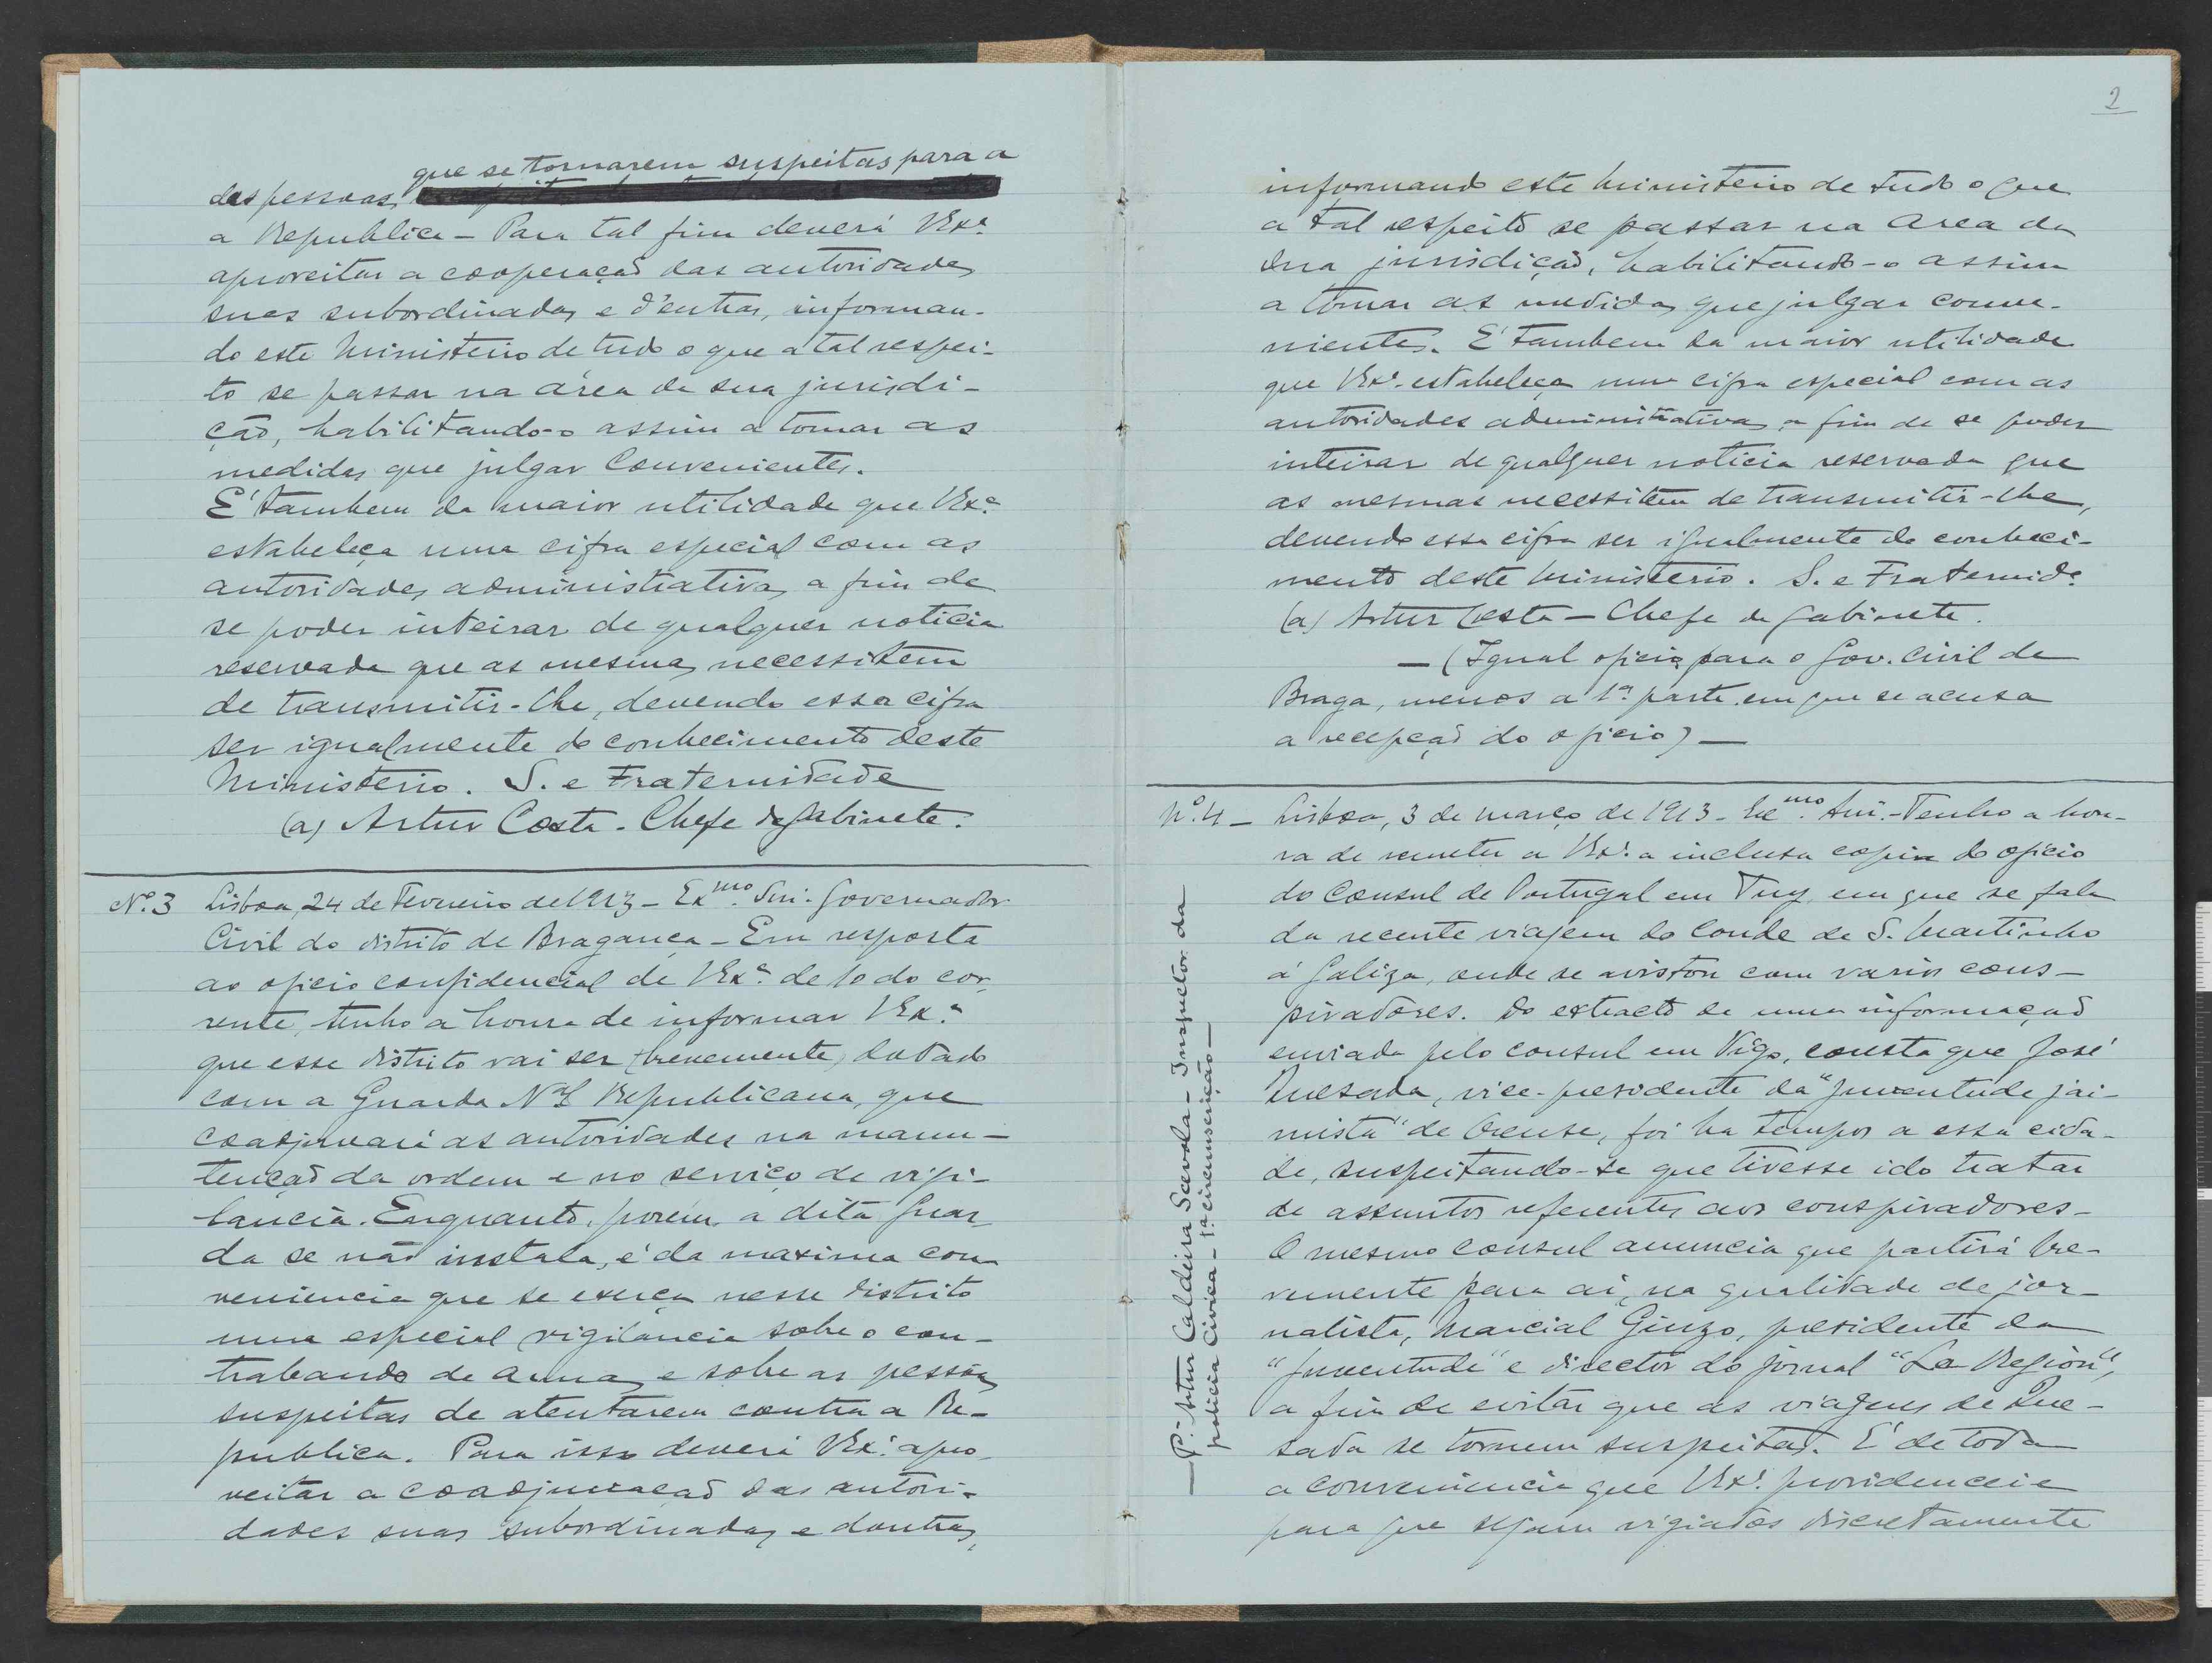 que se tornarem suspeitas para a
das pessoas
a Republica - Para tal fim deverá VExª
aproveitar a cooperação das autoridades
suas subordinadas e d'outras, informan-
do este Ministerio de tudo o que a tal respei-
to se passar na área da sua jurisdi-
ção, habilitando-o assim a tomar as
medidas que julgar convenientes.
É tambem da maior utilidade que VExª
estabeleça uma cifra especial com as
autoridades administrativas a fim de
se poder inteirar de qualquer noticia
reservada que as mesmas necessitem
de transmitir-lhe, devendo essa cifra
ser igualmente do conhecimento deste
Ministerio. S. e Fraternidade
(a) Artur Costa - Chefe do gabinete.
Nº 3 Lisboa, 24 de Fevereiro de 1913 - Exmo. Snr. Governador
Civil do distrito de Bragança - Em resposta
ao oficio confidencial de VExª de 10 do cor-
rente, tenho a honra de informar VExª
que esse distrito vai ser (brevemente) dotado
com a Guarda Nal Republicana, que
coadjuvará as autoridades na manu-
tenção da ordem e no serviço de vigi-
lancia. Enquanto, porém, a dita guar
da se não instala, é da maxima con-
veniencia que se exerça nesse distrito
uma especial vigilancia sobre o con-
trabando de armas e sobre as pessoas
suspeitas de atentarem contra a Re-
publica. Para isso deverá VExª apro-
veitar a coadjuvação das autori-
dades suas subordinadas e doutras,
2
informando este Ministerio de tudo o que
a tal respeito se passar na area da
sua jurisdição, habilitando-o assim
a tomar as medidas que julgar conve-
nientes. É tambem da maior utilidade
que VExª estabeleça uma cifra especial com as
autoridades administrativas a fim de se poder
inteirar de qualquer noticia reservada que
as mesmas necessitem de transmitir-lhe,
devendo essa cifra ser igualmente do conheci-
mento deste Ministerio. S. e Fraternide
(a) Artur Costa - Chefe do gabinete.
- (Igual oficio para o Gov. Civil de
Braga, menos a 1ª parte em que se acusa
a recepção do oficio) -
Nº 4 - Lisboa, 3 de março de 1913 - Exmo. Am.º - Tenho a hon-
ra de remeter a VExª a inclusa copia do oficio
do Consul de Portugal em Tuy, em que se fala
da recente viagem do Conde de S. Martinho
á Galiza, onde se avistou com varios cons-
piradores. Do extracto de uma informação
enviada pelo consul em Vigo, consta que José
Quesada, vice-presidente da "Juventude jai-
mista" de Orense, foi ha tempos a essa cida-
de, suspeitando-se que tivesse ido tratar
de assuntos referentes aos conspiradores -
O mesmo consul anuncia que partirá bre-
vemente para aí, na qualidade de jor-
nalista, Marcial Ginzo, presidente da
"Juventude" e director do jornal "La Región",
a fim de evitar que as viagens de Que-
sada se tornem suspeitas. É de toda
a conveniencia que VExª providenceie
para que sejam vigiados discretamente
- Pª Artur Caldeira Scevola - Inspector da
policia Civica - 1ª circunscrição -